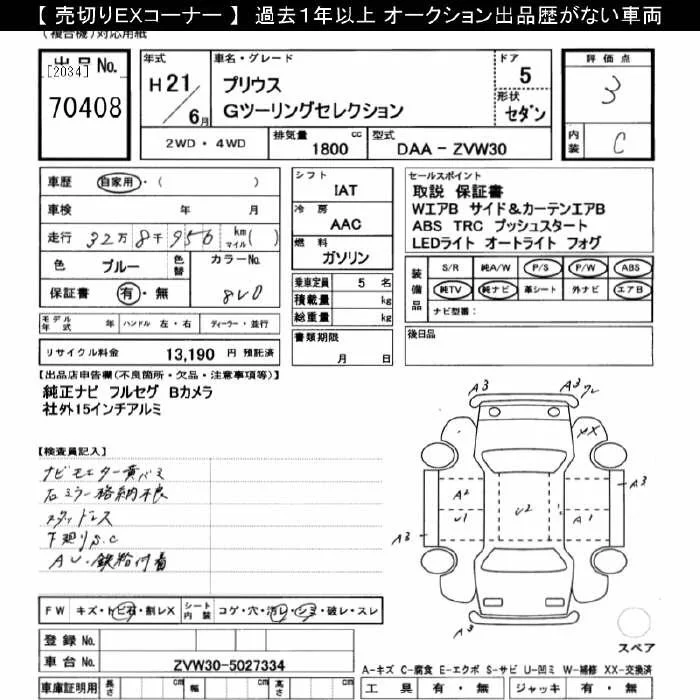 【 売切りEXコーナー 】 過去1年以上 オークション出品歴がない車両
(複合機)対応用紙
出品 No. [2034]
70408
年式 H21/6月
車名・グレード プリウス
Gツーリングセレクション
ドア 5
形状 セダン
評価点 3
内装 C
2WD・4WD
排気量 1800 cc
型式 DAA-ZVW30
車歴 自家用・( )
車検 年 月
走行 32万 8千 956 km マイル ( )
色 ブルー 色替 カラーNo. 8V0
保証書 有・無
モデル年式 年 ハンドル 左・右 ディーラー・並行
リサイクル料金 13,190 円 預託済
シフト IAT
冷房 AAC
燃料 ガソリン
乗車定員 5 名
積載量 kg
総重量 kg
書類期限
月 日
セールスポイント
取説 保証書
WエアB サイド&カーテンエアB
ABS TRC プッシュスタート
LEDライト オートライト フォグ
装備品 S/R 純A/W P/S P/W ABS
純TV 純ナビ 革シート 外ナビ エアB
ナビ型番:
後日品
【出品店申告欄(不良箇所・欠品・注意事項等)】
純正ナビ フルセグ Bカメラ
社外15インチアルミ
【検査員記入】
ナビモニター黄バミ
右ミラー格納不良
スタッドレス
下廻りS.C
A3 A3 ワレ
XX
A2 U1 U2 A1 A3
A3
A3
スペア
FW キズ・トビ石・割レX シート内装 コゲ・穴・汚レ・シミ・破レ・スレ
登録 No.
車台 No. ZVW30-5027334
車庫証明用 長さ cm 幅 cm 高さ cm
A-キズ C-腐食 E-エクボ S-サビ U-凹ミ W-補修 XX-交換済
工具 有・無 ジャッキ 有・無